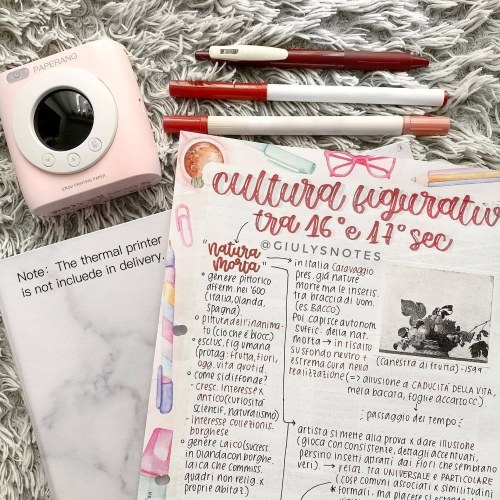 PAPERANG
Note: The thermal printer
is not incluede in delivery.
cultura figurativ
tra 16° e 17° sec
@GIULYSNOTES
"natura
morta"
° genere pittorico
afferm. nel '600
(italia, olanda,
spagna)
° pittura dell'inanima-
to (ciò che è blocc)
° esclus. fig umana
(protag: frutta, fiori,
ogg. vita quotid.
° come si diffonde?
- cresc. interesse x
antico (curiosità
scientif, naturalismo)
- interesse collezionis.
borghese
° genere laico (success.
in olanda con borghe.
laica che commiss.
quadri non relig x
proprie abitaz.)
→ in italia caravaggio
pres. già nature
morte ma le inseris.
tra braccia di uom.
(es. Bacco)
Poi capisce autonom
suffic. della nat.
morta → in risalto
su sfondo neutro +
estrema cura nella
realizzazione
(canestra di frutta) -1599
(=> allusione a CADUCITÀ DELLA VITA,
mela bacata, foglie accartocc.)
passaggio del tempo
artista si mette alla prova x dare illusione
(gioca con consistenze, dettagli accentuati,
persino insetti attratti dai fiori che sembrano
veri). → relaz. tra UNIVERSALE e PARTICOLARE
(cose comuni associati x similitudi